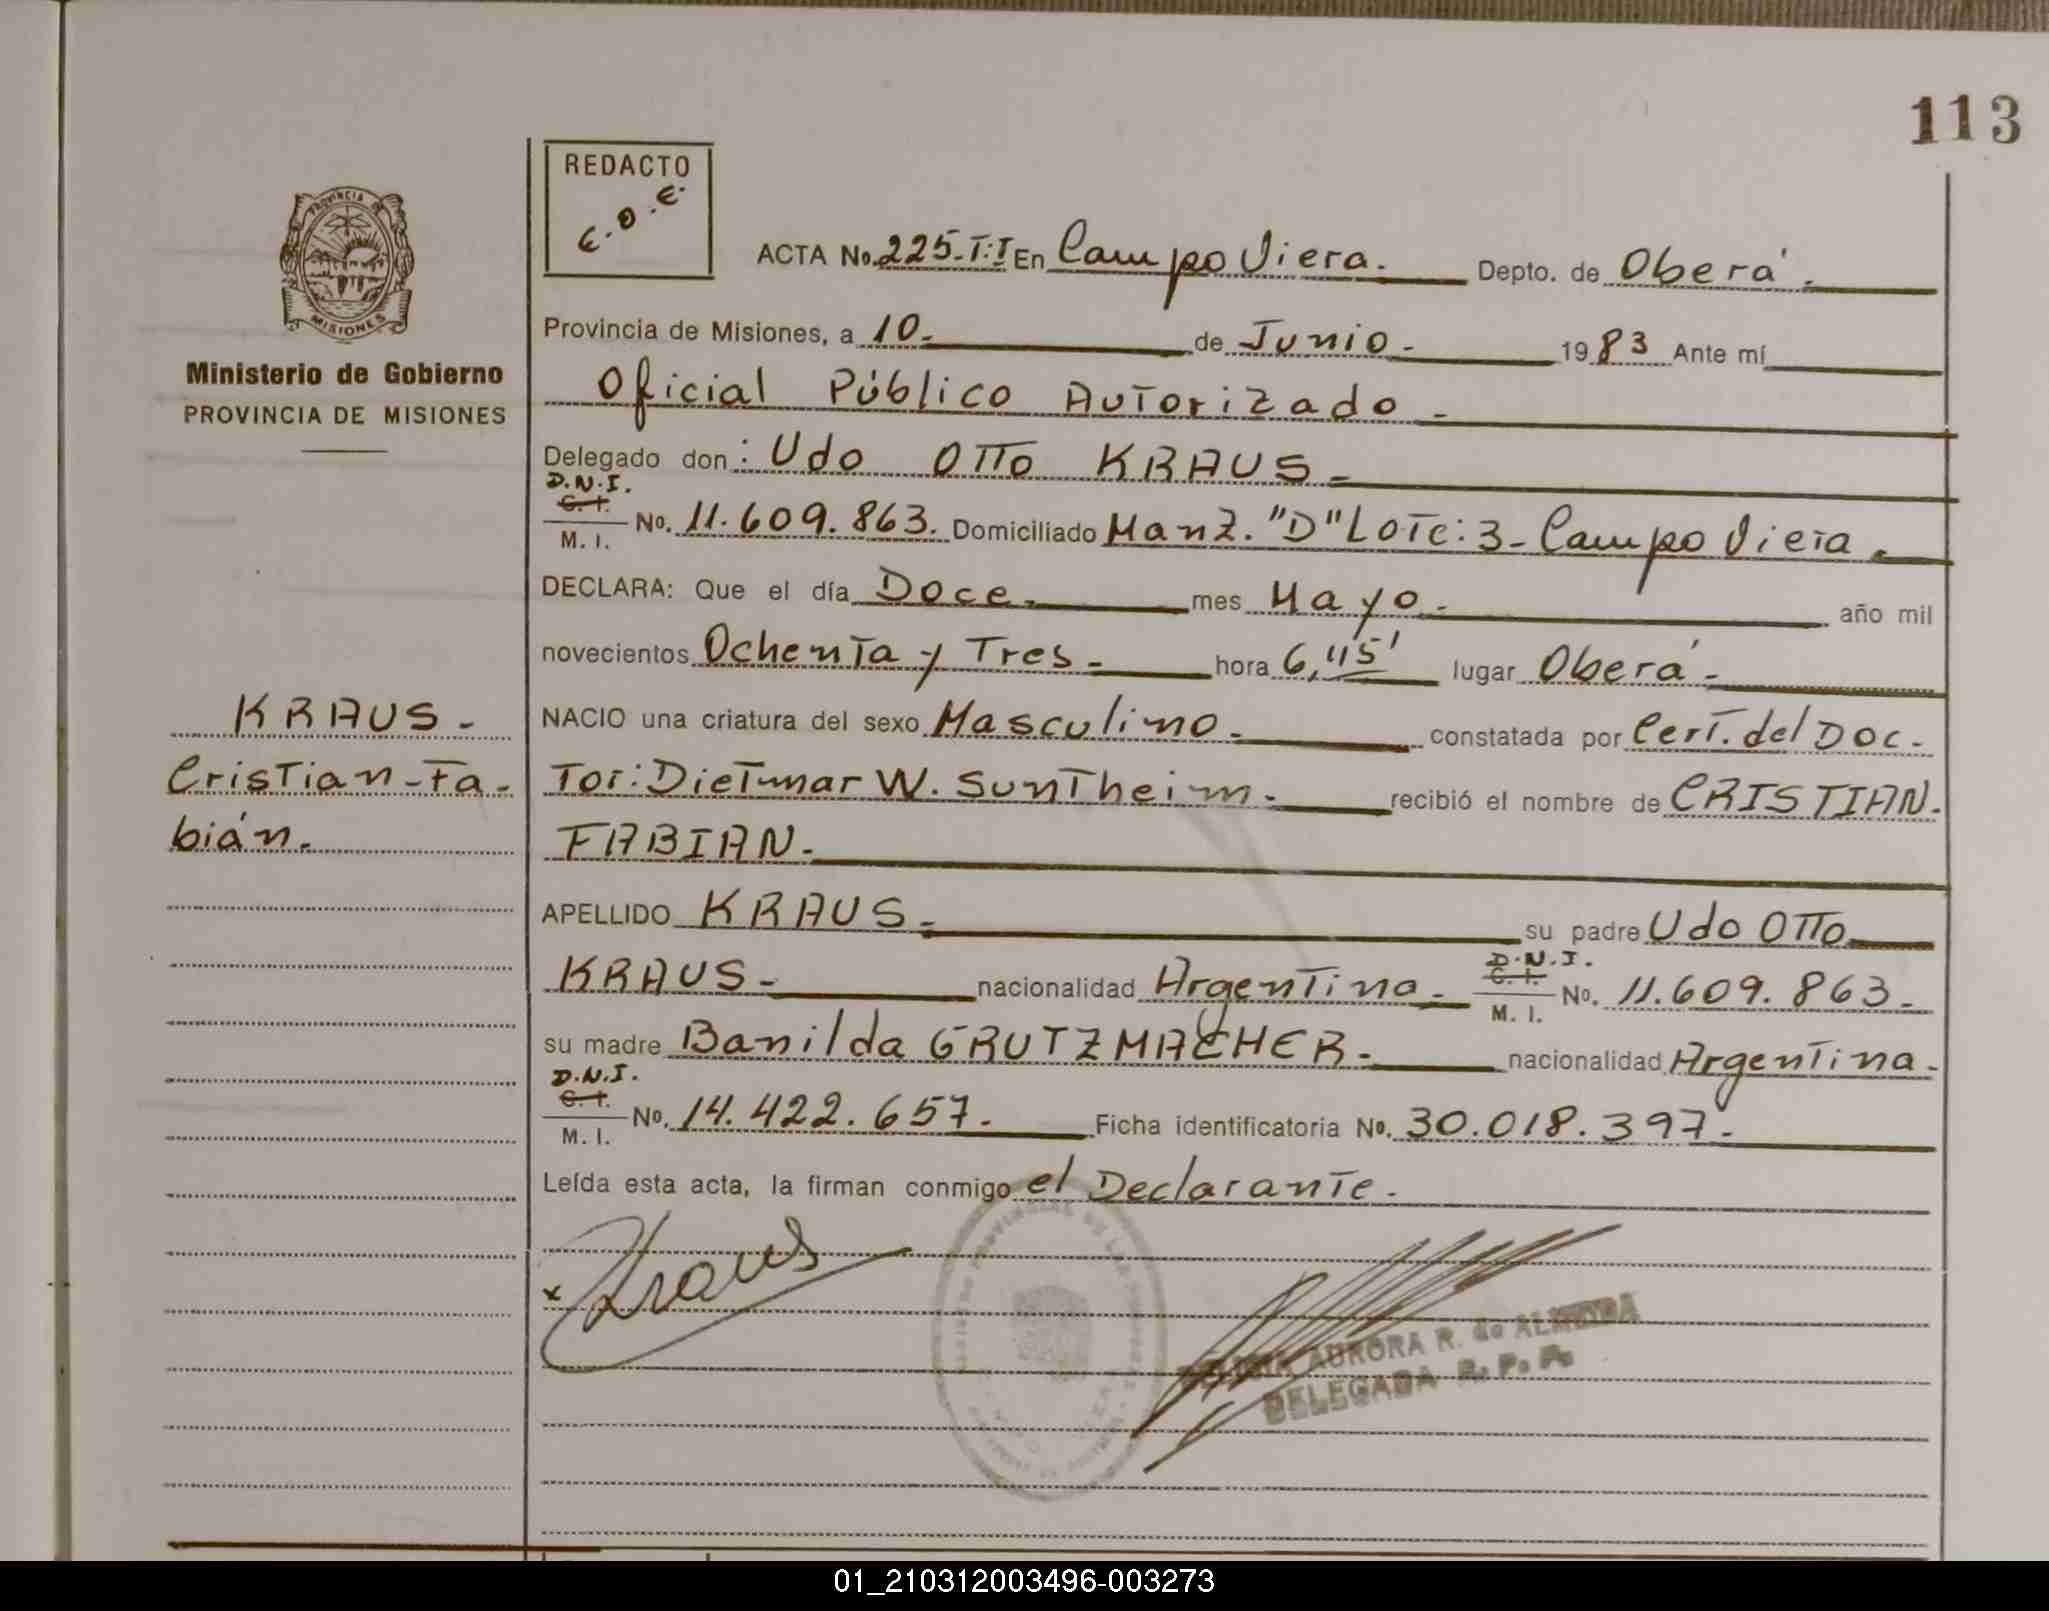 113
REDACTO
E.O.E.
ACTA No. 225-T:I En Campo Viera.- Depto. de Oberá.-
PROVINCIA DE
MISIONES
Provincia de Misiones, a 10.- de Junio.- 1983 Ante mí
Ministerio de Gobierno
PROVINCIA DE MISIONES
Oficial Público Autorizado.-
Delegado don: Udo Otto KRAUS.-
D.N.I.
C. I.
M. I.
No. 11.609.863. Domiciliado Manz. "D" Lote: 3- Campo Viera.-
DECLARA: Que el día Doce.- mes Mayo.- año mil
novecientos Ochenta y Tres.- hora 6,45' lugar Oberá.-
KRAUS.-
Cristian-Fa-
bián.-
NACIO una criatura del sexo Masculino.- constatada por Cert. del Doc-
tor: Dietmar W. Suntheim.- recibió el nombre de CRISTIAN-
FABIAN.-
APELLIDO KRAUS.- su padre Udo Otto
KRAUS.- nacionalidad Argentina.- D.N.I.
C. I.
M. I.
No. 11.609.863.-
su madre Banilda GRUTZMACHER.- nacionalidad Argentina.-
D.N.I.
C. I.
M. I.
No. 14.422.657.- Ficha identificatoria No. 30.018.397.-
Leída esta acta, la firman conmigo el Declarante.-
x Kraus
AURORA R. de ALMEIDA
DELEGADA R. P. P.
01_210312003496-003273